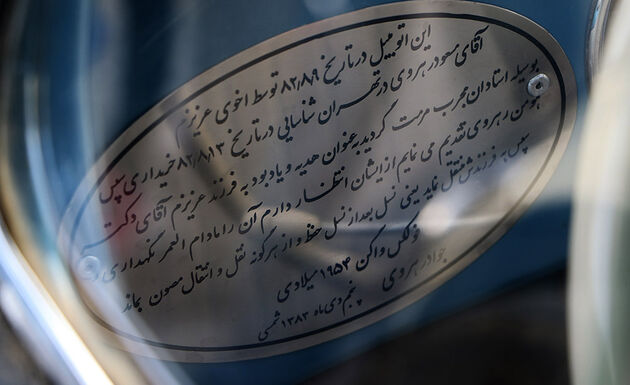 این اتومبیل در تاریخ ۸۲٫۸٫۹ توسط اخوی عزیزم
آقای مسعود رهروی در تهران شناسایی در تاریخ ۸۲٫۸٫۱۳ خریداری سپس
بوسیله استادان مجرب مرمت گردید به عنوان هدیه و یادبود به فرزند عزیزم آقای دکتر
بهمن رهروی تقدیم می نمایم از ایشان انتظار دارم آن را مادام العمر نگهداری
سپس به فرزندش منتقل نماید یعنی نسل بعد از نسل حفظ و از هر گونه نقل و انتقال مصون بماند
فولکس واگن ۱۹۵۴ میلادی
جواد رهروی
پنجم دی ماه ۱۳۸۳ شمسی